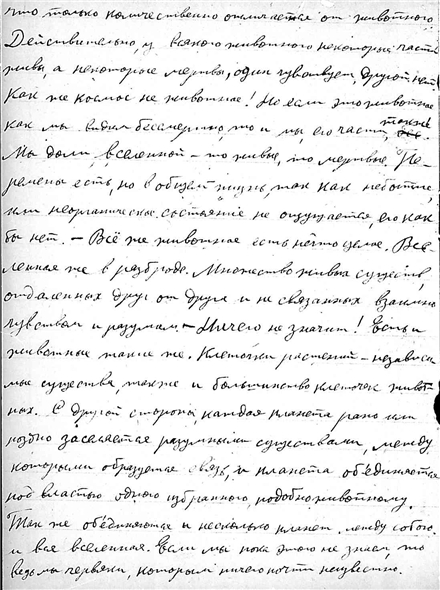 что только количественно отличается от животного
Действительно, у всякого животного некоторые части
живы, а некоторые мертвы, один чувствует, другой нет
Как же космос не животное! Но если это животное
как мы видим бессмертно, то и мы, его части, также
Мы доли вселенной – то живые, то мертвые. Пе-
ремены есть, но в общем жизнь, так как небытие,
или неорганическое состояние не ощущается, его как
бы нет. – Всё же животное есть нечто целое. Все-
ленная же в разброде. Множество живых существ,
отдаленных друг от друга и не связанных взаимно
чувством и разумом. – Ничего не значит! Есть и
животные такие же. Клеточки растений – независи
мые существа, также и большинство клеточек живот-
ных. С другой стороны, каждая планета рано или
поздно заселяется разумными существами, между
которыми образуется связь, и планета объединяется
под властью одного избранного, подобно животному.
Так же объединяются и несколько планет между собою
и вся вселенная. Если мы пока этого не знаем, то
ведь мы червяки, которым ничего почти неизвестно.